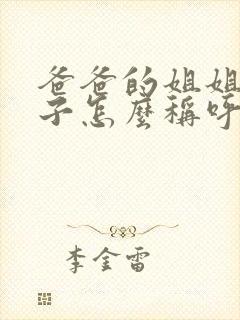 爸爸的姐姐
子怎麼稱呼
李金雷